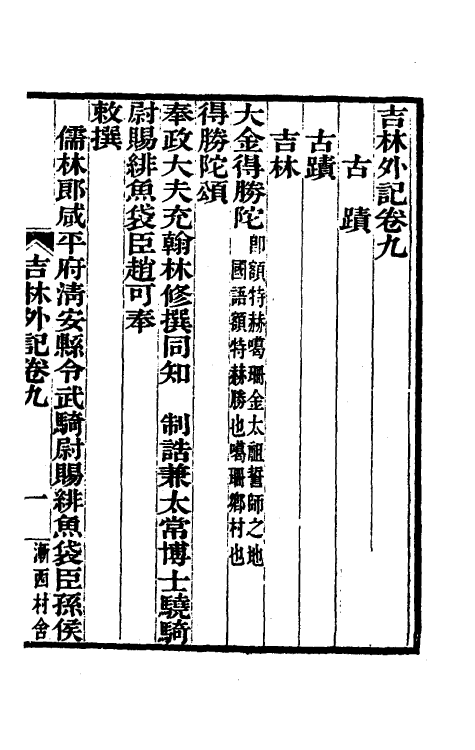 吉林外記卷九
古蹟
古蹟
吉林
大金得勝陀卽額特赫噶珊金太祖誓師之地
國語額特赫勝也噶珊鄉村也
得勝陀頌
奉政大夫充翰林修撰同知 制誥兼太常博士驍騎
尉賜緋魚袋臣趙可奉
敕撰
儒林郎咸平府淸安縣令武騎尉賜緋魚袋臣孫侯
吉林外記卷九 一 漸西村舍